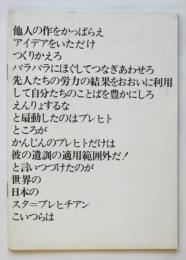 他人の作をかっぱらえ
アイデアをいただけ
つくりかえろ
バラバラにほぐしてつなぎあわせろ
先人たちの労力の結果をおおいに利用
して自分たちのことばを豊かにしろ
えんりょするな
と扇動したのはブレヒト
ところが
かんじんのブレヒトだけは
彼の遺訓の適用範囲外だ!
と言いつづけたのが
世界の
日本の
スタ=ブレヒチアン
こいつらは